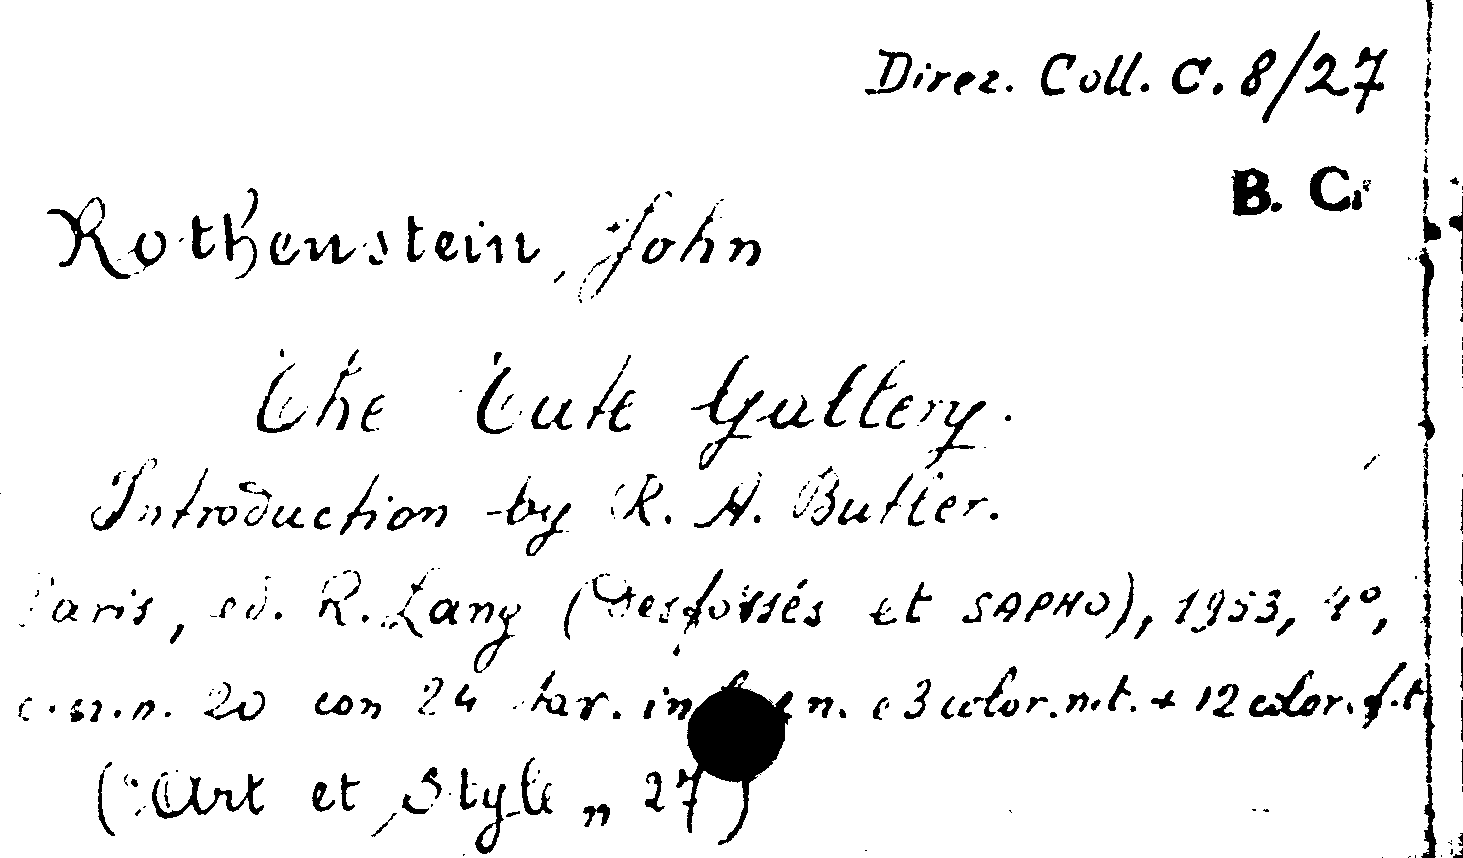 Direz. Coll. C. 8/27
B. C.
Rothenstein, John
The Tate Gallery.
Introduction by R. A. Butler.
Paris, ed. R. Lang (Desfossés et SAPHO), 1953, 4º,
c.s.n. 20 con 24 tav. in n. e 3 color. n.t. + 12 color. f.t.
("Art et Style" 27)